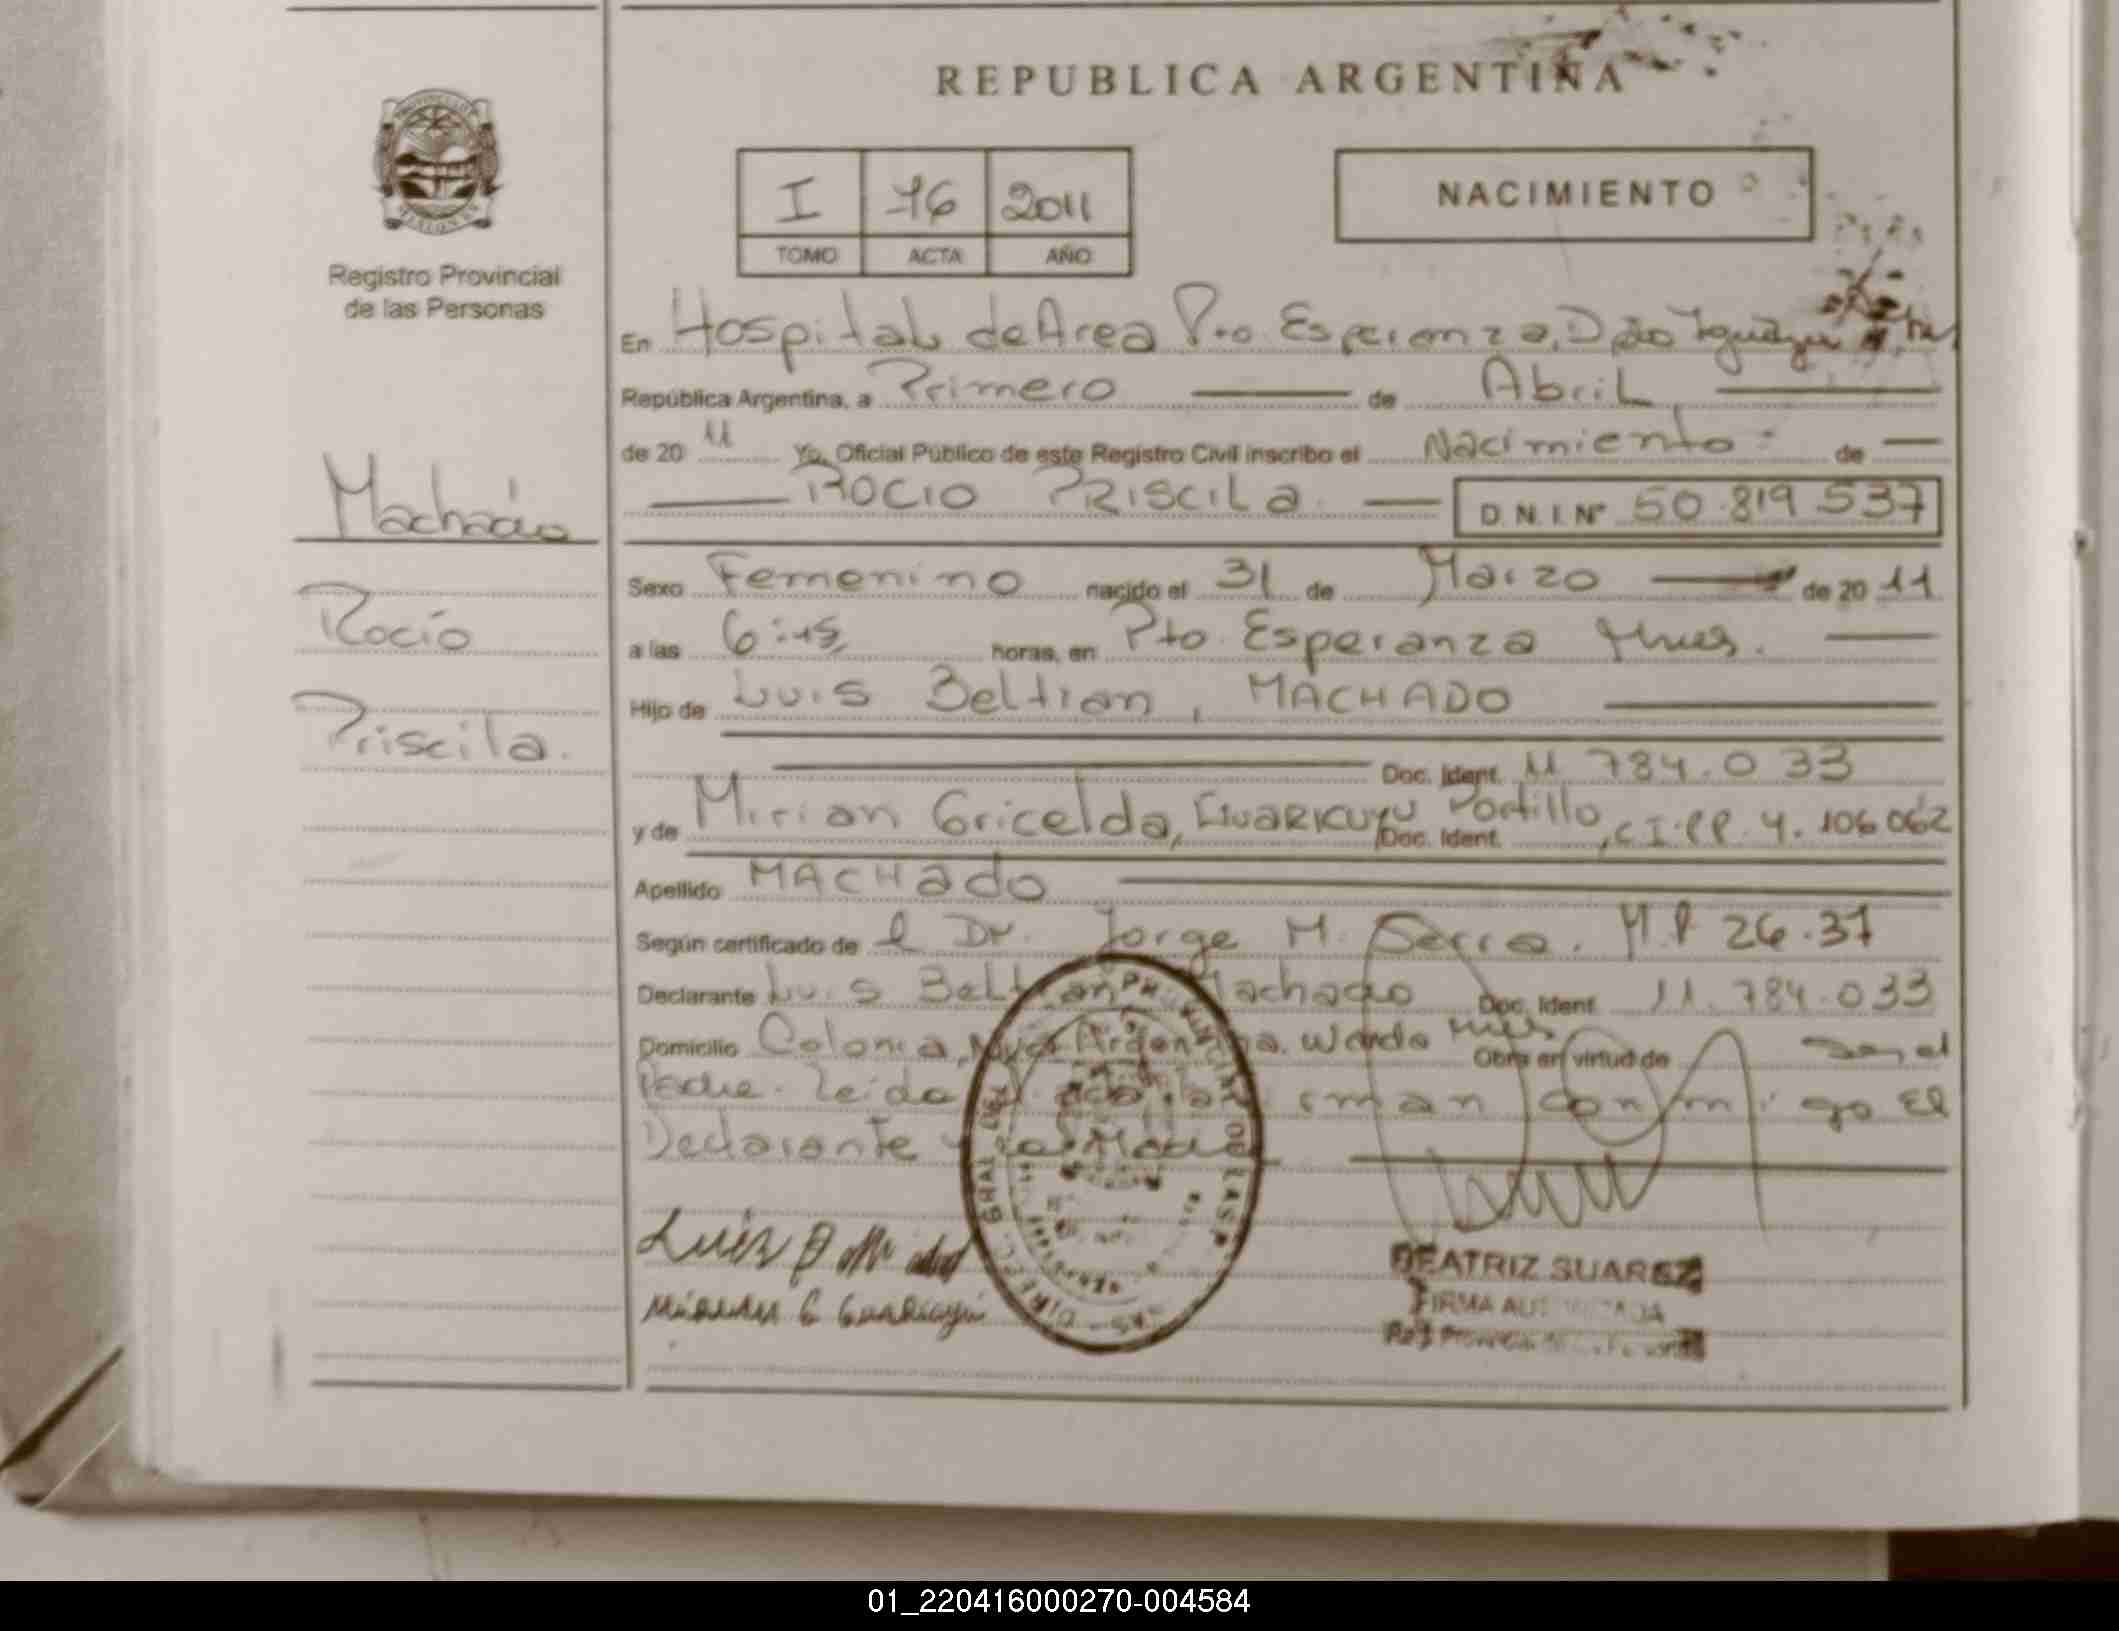 REPUBLICA ARGENTINA
I 76 2011
TOMO ACTA AÑO
NACIMIENTO
Registro Provincial
de las Personas
En Hospital de Area Pto Esperanza, Dpto Iguazu
República Argentina, a Primero de Abril
de 20 11 Yo, Oficial Público de este Registro Civil inscribo el Nacimiento de
ROCIO PRISCILA D.N.I. Nº 50.819.537
Machado
Rocío
Priscila.
Sexo Femenino nacido el 31 de Marzo de 20 11
a las 6:15 horas, en Pto. Esperanza Mnes.
Hijo de Luis Beltran, MACHADO
Doc. Ident. 11.784.033
y de Mirian Gricelda, GUARICUYU Portillo, Doc. Ident. C.I.PP. 4.106062
Apellido MACHADO
Según certificado de l Dr. Jorge M. Serra. M.P 26.37
Declarante Luis Beltran Machado Doc. Ident. 11.784.033
Domicilio Colonia, Nueva Argentina. Wanda Mnes Obra en virtud de Ser el
Padre. Leida el acta, la firman conmigo El
Declarante y la Madre
Luis B
BEATRIZ SUAREZ
FIRMA AUTORIZADA
01_220416000270-004584